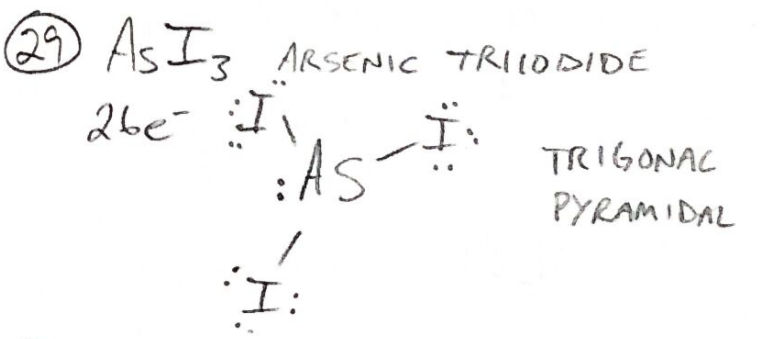 29 AsI3 ARSENIC TRIIODIDE
26e-
I
I
:AS
TRIGONAL
PYRAMIDAL
I